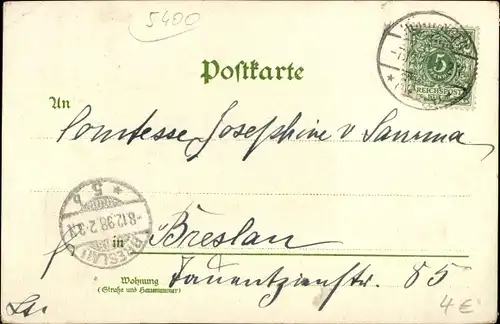 5400
5
REICHSPOST
Postkarte
An
Comtesse Josephine v Saurma
BRESLAU
8.12.98. 2-3N
5 b
in Breslau
Wohnung
(Straße und Hausnummer)
Tauentzienstr. 85
4 €